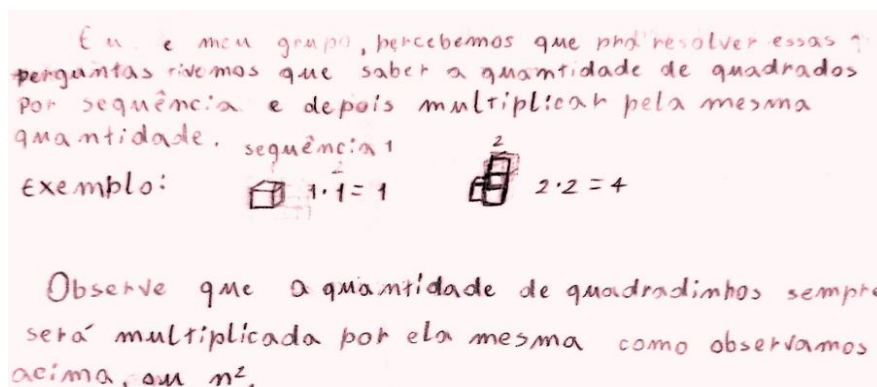 Eu e meu grupo, percebemos que pra resolver essas
perguntas tivemos que saber a quantidade de quadrados
Por sequência e depois multiplicar pela mesma
quantidade.
sequência 1 2
Exemplo: 1·1=1 2·2=4
Observe que a quantidade de quadradinhos sempre
será multiplicada por ela mesma como observamos
acima, ou n².